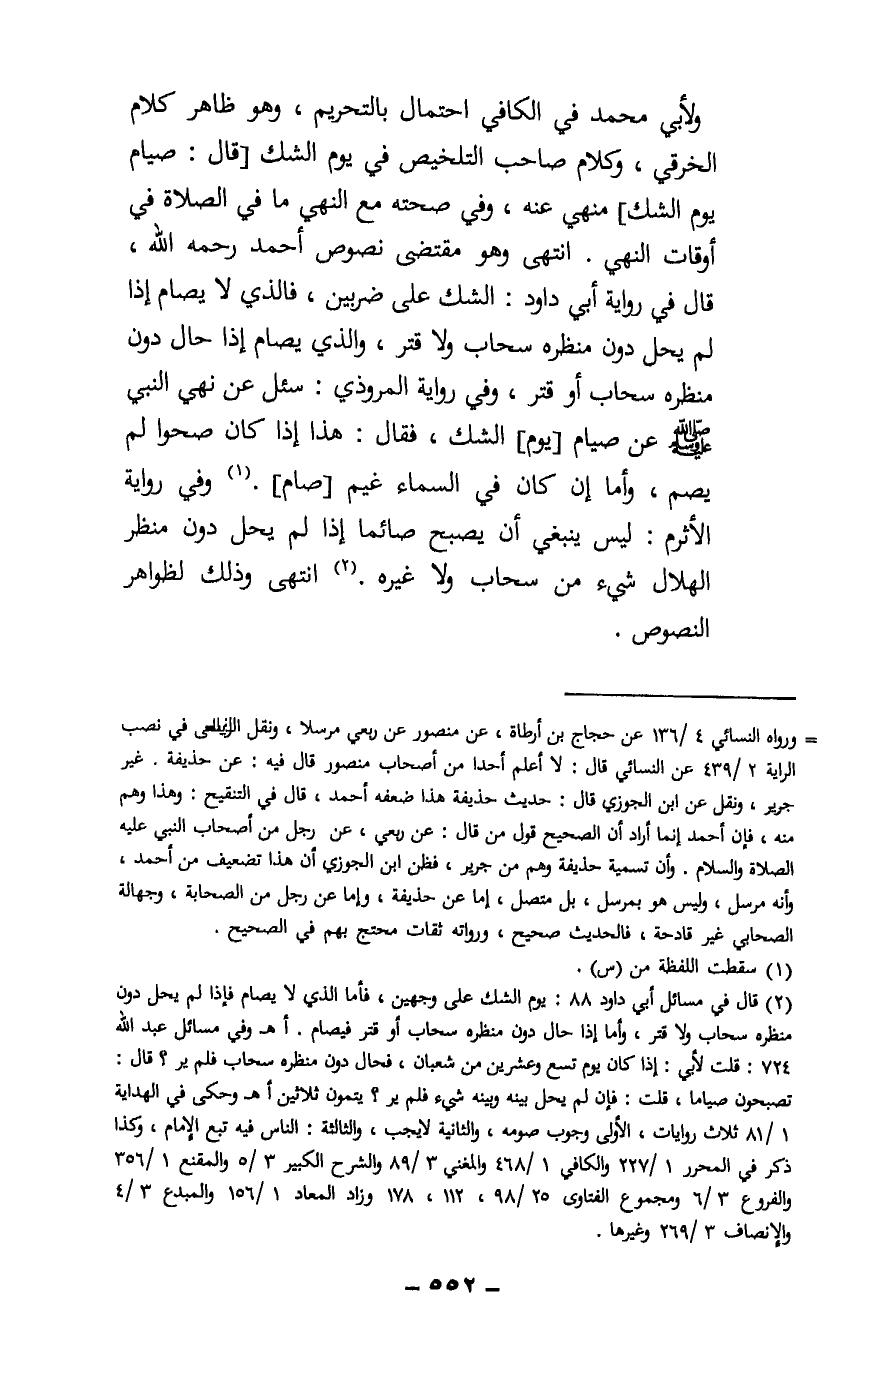 ولأبي محمد في الكافي احتمال بالتحريم ، وهو ظاهر كلام
الخرقي ، وكلام صاحب التلخيص في يوم الشك [قال : صيام
يوم الشك] منهي عنه ، وفي صحته مع النهي ما في الصلاة في
أوقات النهي . انتهى وهو مقتضى نصوص أحمد رحمه الله ،
قال في رواية أبي داود : الشك على ضربين ، فالذي لا يصام إذا
لم يحل دون منظره سحاب ولا قتر ، والذي يصام إذا حال دون
منظره سحاب أو قتر ، وفي رواية المروذي : سئل عن نهي النبي
ﷺ عن صيام [يوم] الشك ، فقال : هذا إذا كان صحوا لم
يصم ، وأما إن كان في السماء غيم [صام] .(١) وفي رواية
الأثرم : ليس ينبغي أن يصبح صائما إذا لم يحل دون منظر
الهلال شيء من سحاب ولا غيره .(٢) انتهى وذلك لظواهر
النصوص .
= ورواه النسائي ٤ /١٣٦ عن حجاج بن أرطاة ، عن منصور عن ربعي مرسلا ، ونقل الزيلعي في نصب
الراية ٢ /٤٣٩ عن النسائي قال : لا أعلم أحدا من أصحاب منصور قال فيه : عن حذيفة . غير
جرير ، ونقل عن ابن الجوزي قال : حديث حذيفة هذا ضعفه أحمد ، قال في التنقيح : وهذا وهم
منه ، فإن أحمد إنما أراد أن الصحيح قول من قال : عن ربعي ، عن رجل من أصحاب النبي عليه
الصلاة والسلام . وأن تسمية حذيفة وهم من جرير ، فظن ابن الجوزي أن هذا تضعيف من أحمد ،
وأنه مرسل ، وليس هو بمرسل ، بل متصل ، إما عن حذيفة ، وإما عن رجل من الصحابة ، وجهالة
الصحابي غير قادحة ، فالحديث صحيح ، ورواته ثقات محتج بهم في الصحيح .
(١) سقطت اللفظة من (س) .
(٢) قال في مسائل أبي داود ٨٨ : يوم الشك على وجهين ، فأما الذي لا يصام فإذا لم يحل دون
منظره سحاب ولا قتر ، وأما إذا حال دون منظره سحاب أو قتر فيصام . أ هـ وفي مسائل عبد الله
٧٢٤ : قلت لأبي : إذا كان يوم تسع وعشرين من شعبان ، فحال دون منظره سحاب فلم ير ؟ قال :
تصبحون صياما ، قلت : فإن لم يحل بينه وبينه شيء فلم ير ؟ يتمون ثلاثين أ هـ وحكى في الهداية
١ /٨١ ثلاث روايات ، الأولى وجوب صومه ، والثانية لايجب ، والثالثة : الناس فيه تبع الإمام ، وكذا
ذكر في المحرر ١ /٢٢٧ والكافي ١ /٤٦٨ والمغني ٣ /٨٩ والشرح الكبير ٣ /٥ والمقنع ١ /٣٥٦
والفروع ٣ /٦ ومجموع الفتاوى ٢٥ /٩٨ ، ١١٢ ، ١٧٨ وزاد المعاد ١ /١٥٦ والمبدع ٣ /٤
والإنصاف ٣ /٢٦٩ وغيرها .
– ٥٥٢ –